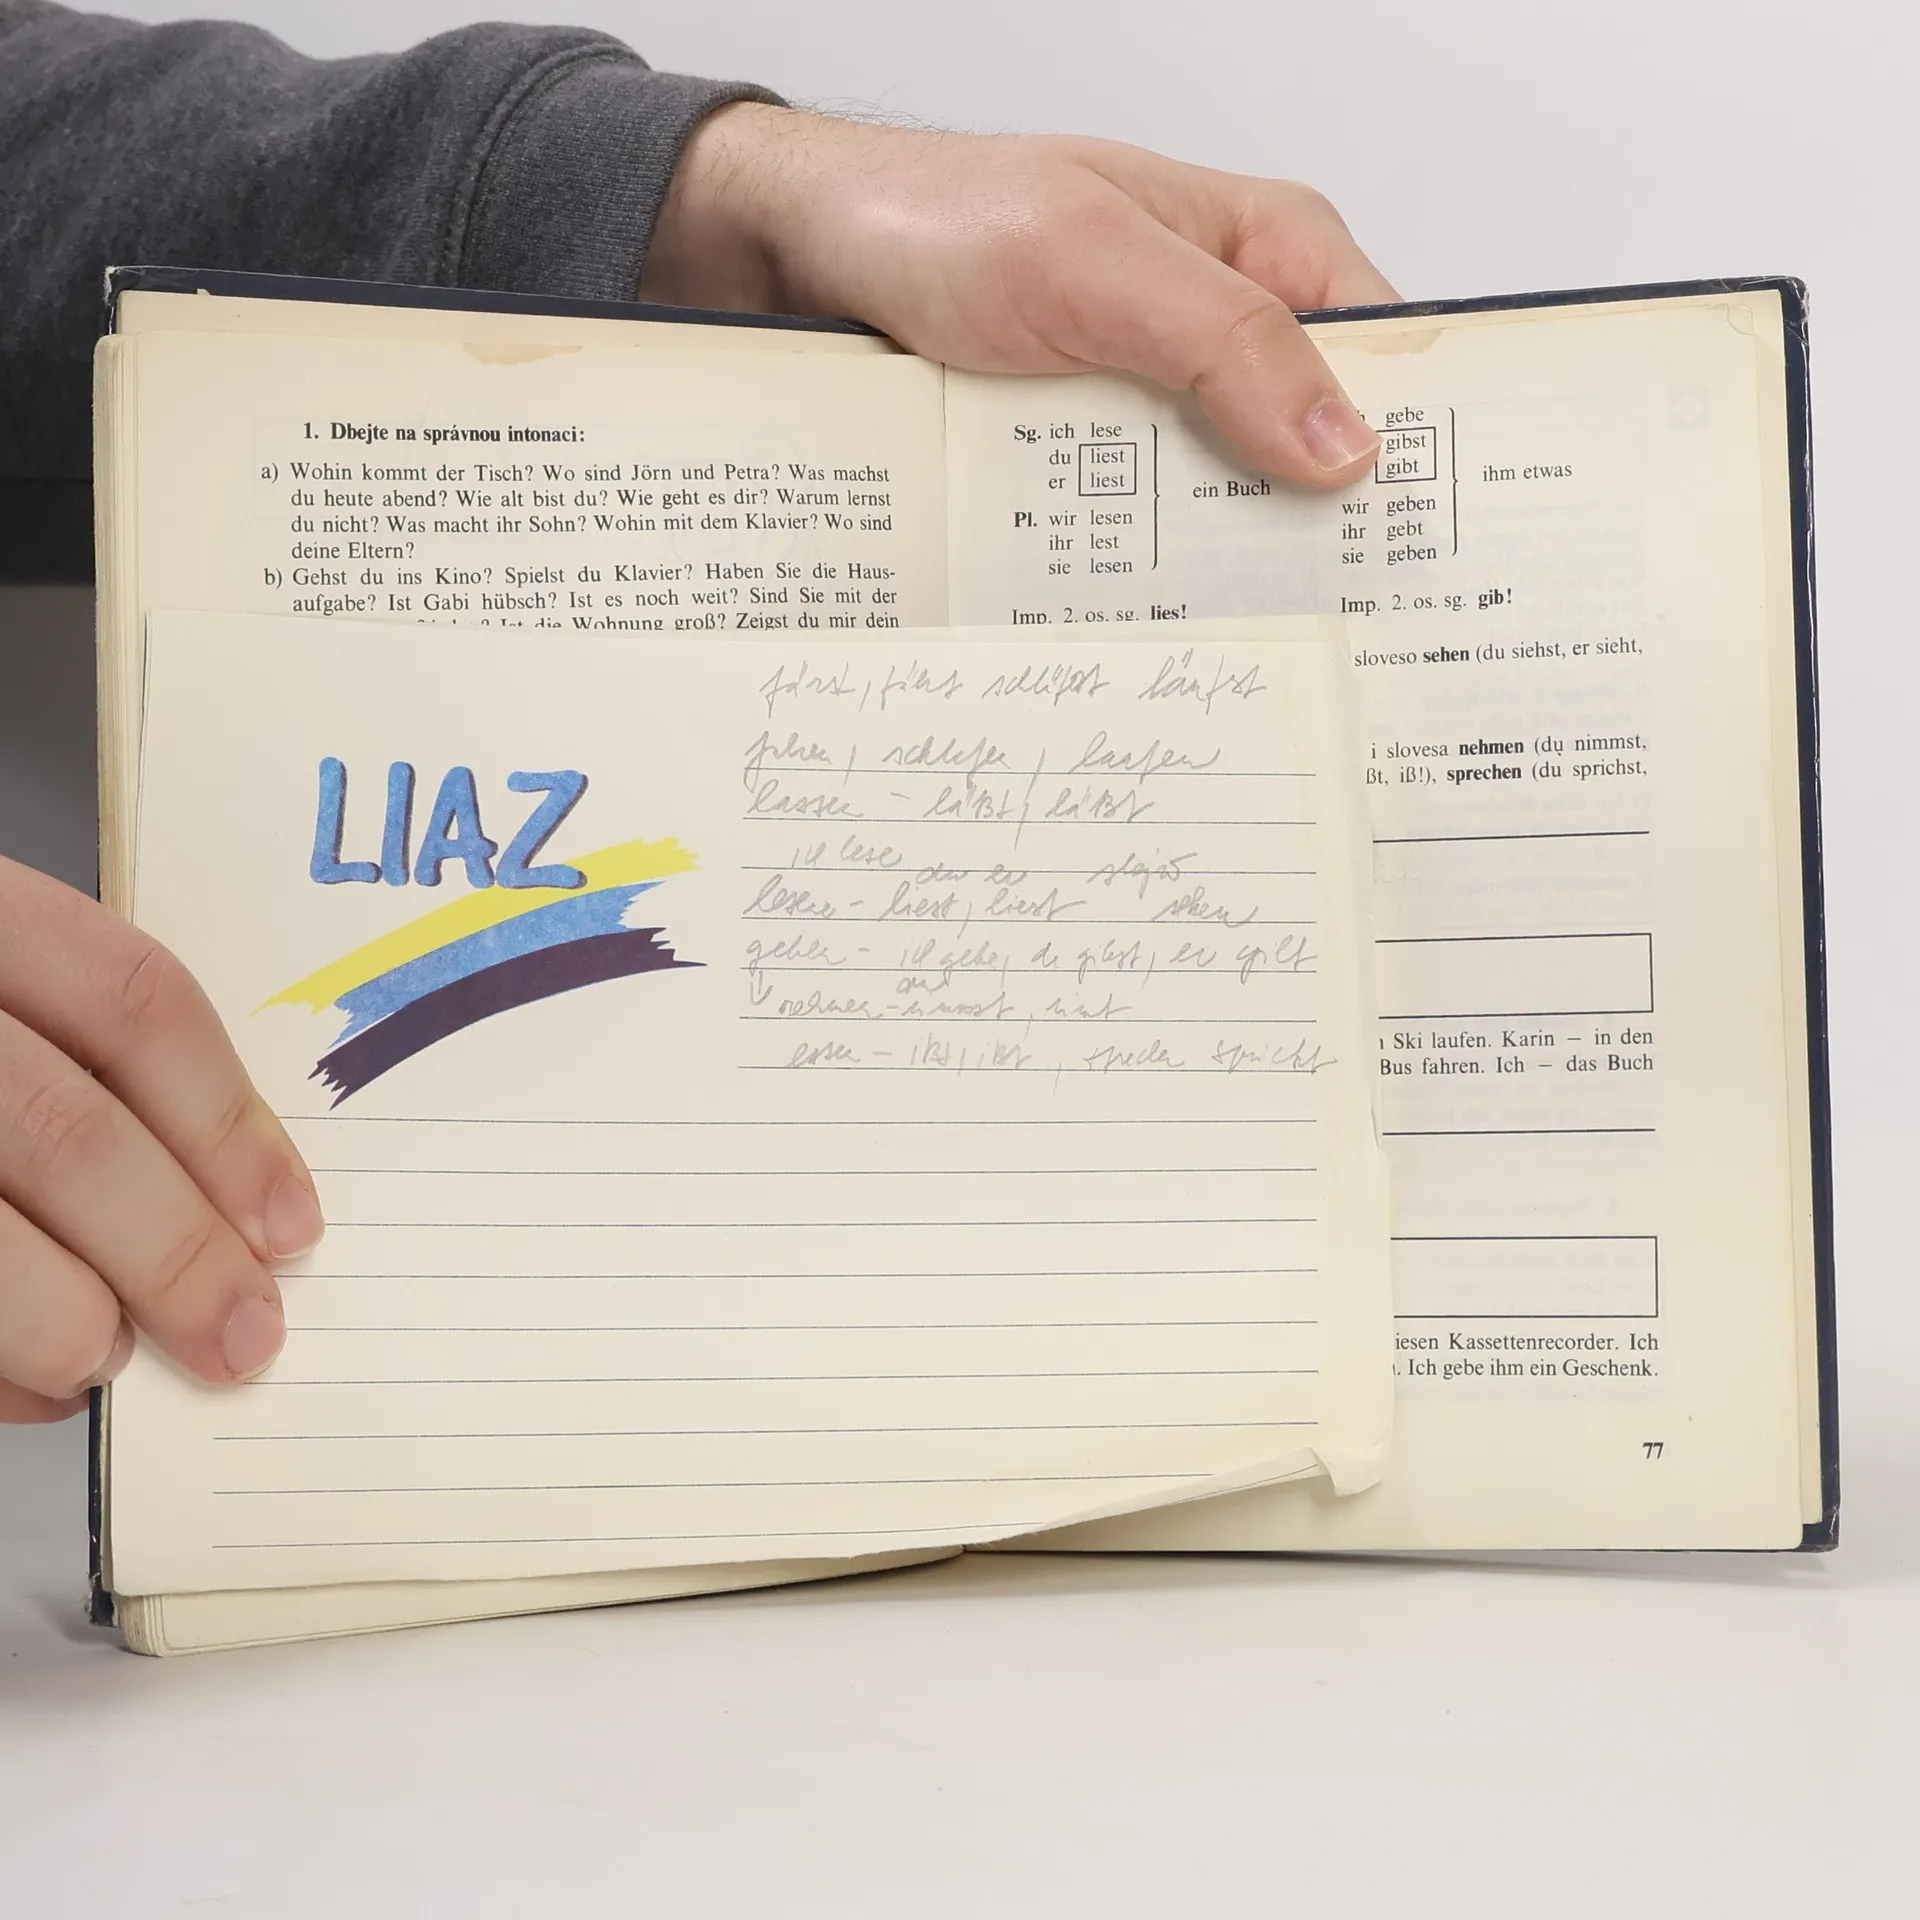 1. Dbejte na správnou intonaci:
a) Wohin kommt der Tisch? Wo sind Jörn und Petra? Was machst
du heute abend? Wie alt bist du? Wie geht es dir? Warum lernst
du nicht? Was macht ihr Sohn? Wohin mit dem Klavier? Wo sind
deine Eltern?
b) Gehst du ins Kino? Spielst du Klavier? Haben Sie die Haus-
aufgabe? Ist Gabi hübsch? Ist es noch weit? Sind Sie mit der
Ist die Wohnung groß? Zeigst du mir dein
Sg. ich lese
du liest
er liest
ein Buch
Pl. wir lesen
ihr lest
sie lesen
Imp. 2. os. sg. lies!
gebe
gibst
gibt
ihm etwas
wir geben
ihr gebt
sie geben
Imp. 2. os. sg. gib!
sloveso sehen (du siehst, er sieht,
i slovesa nehmen (du nimmst,
ßt, iß!), sprechen (du sprichst,
Ski laufen. Karin – in den
Bus fahren. Ich – das Buch
iesen Kassettenrecorder. Ich
. Ich gebe ihm ein Geschenk.
77
LIAZ
läufst
laufen
lassen – läßt, läßt
ich lese du er
lesen – liest, liest sehen
geben – ich gebe, du gibst, er gibt
essen – ißt, ißt, spricht